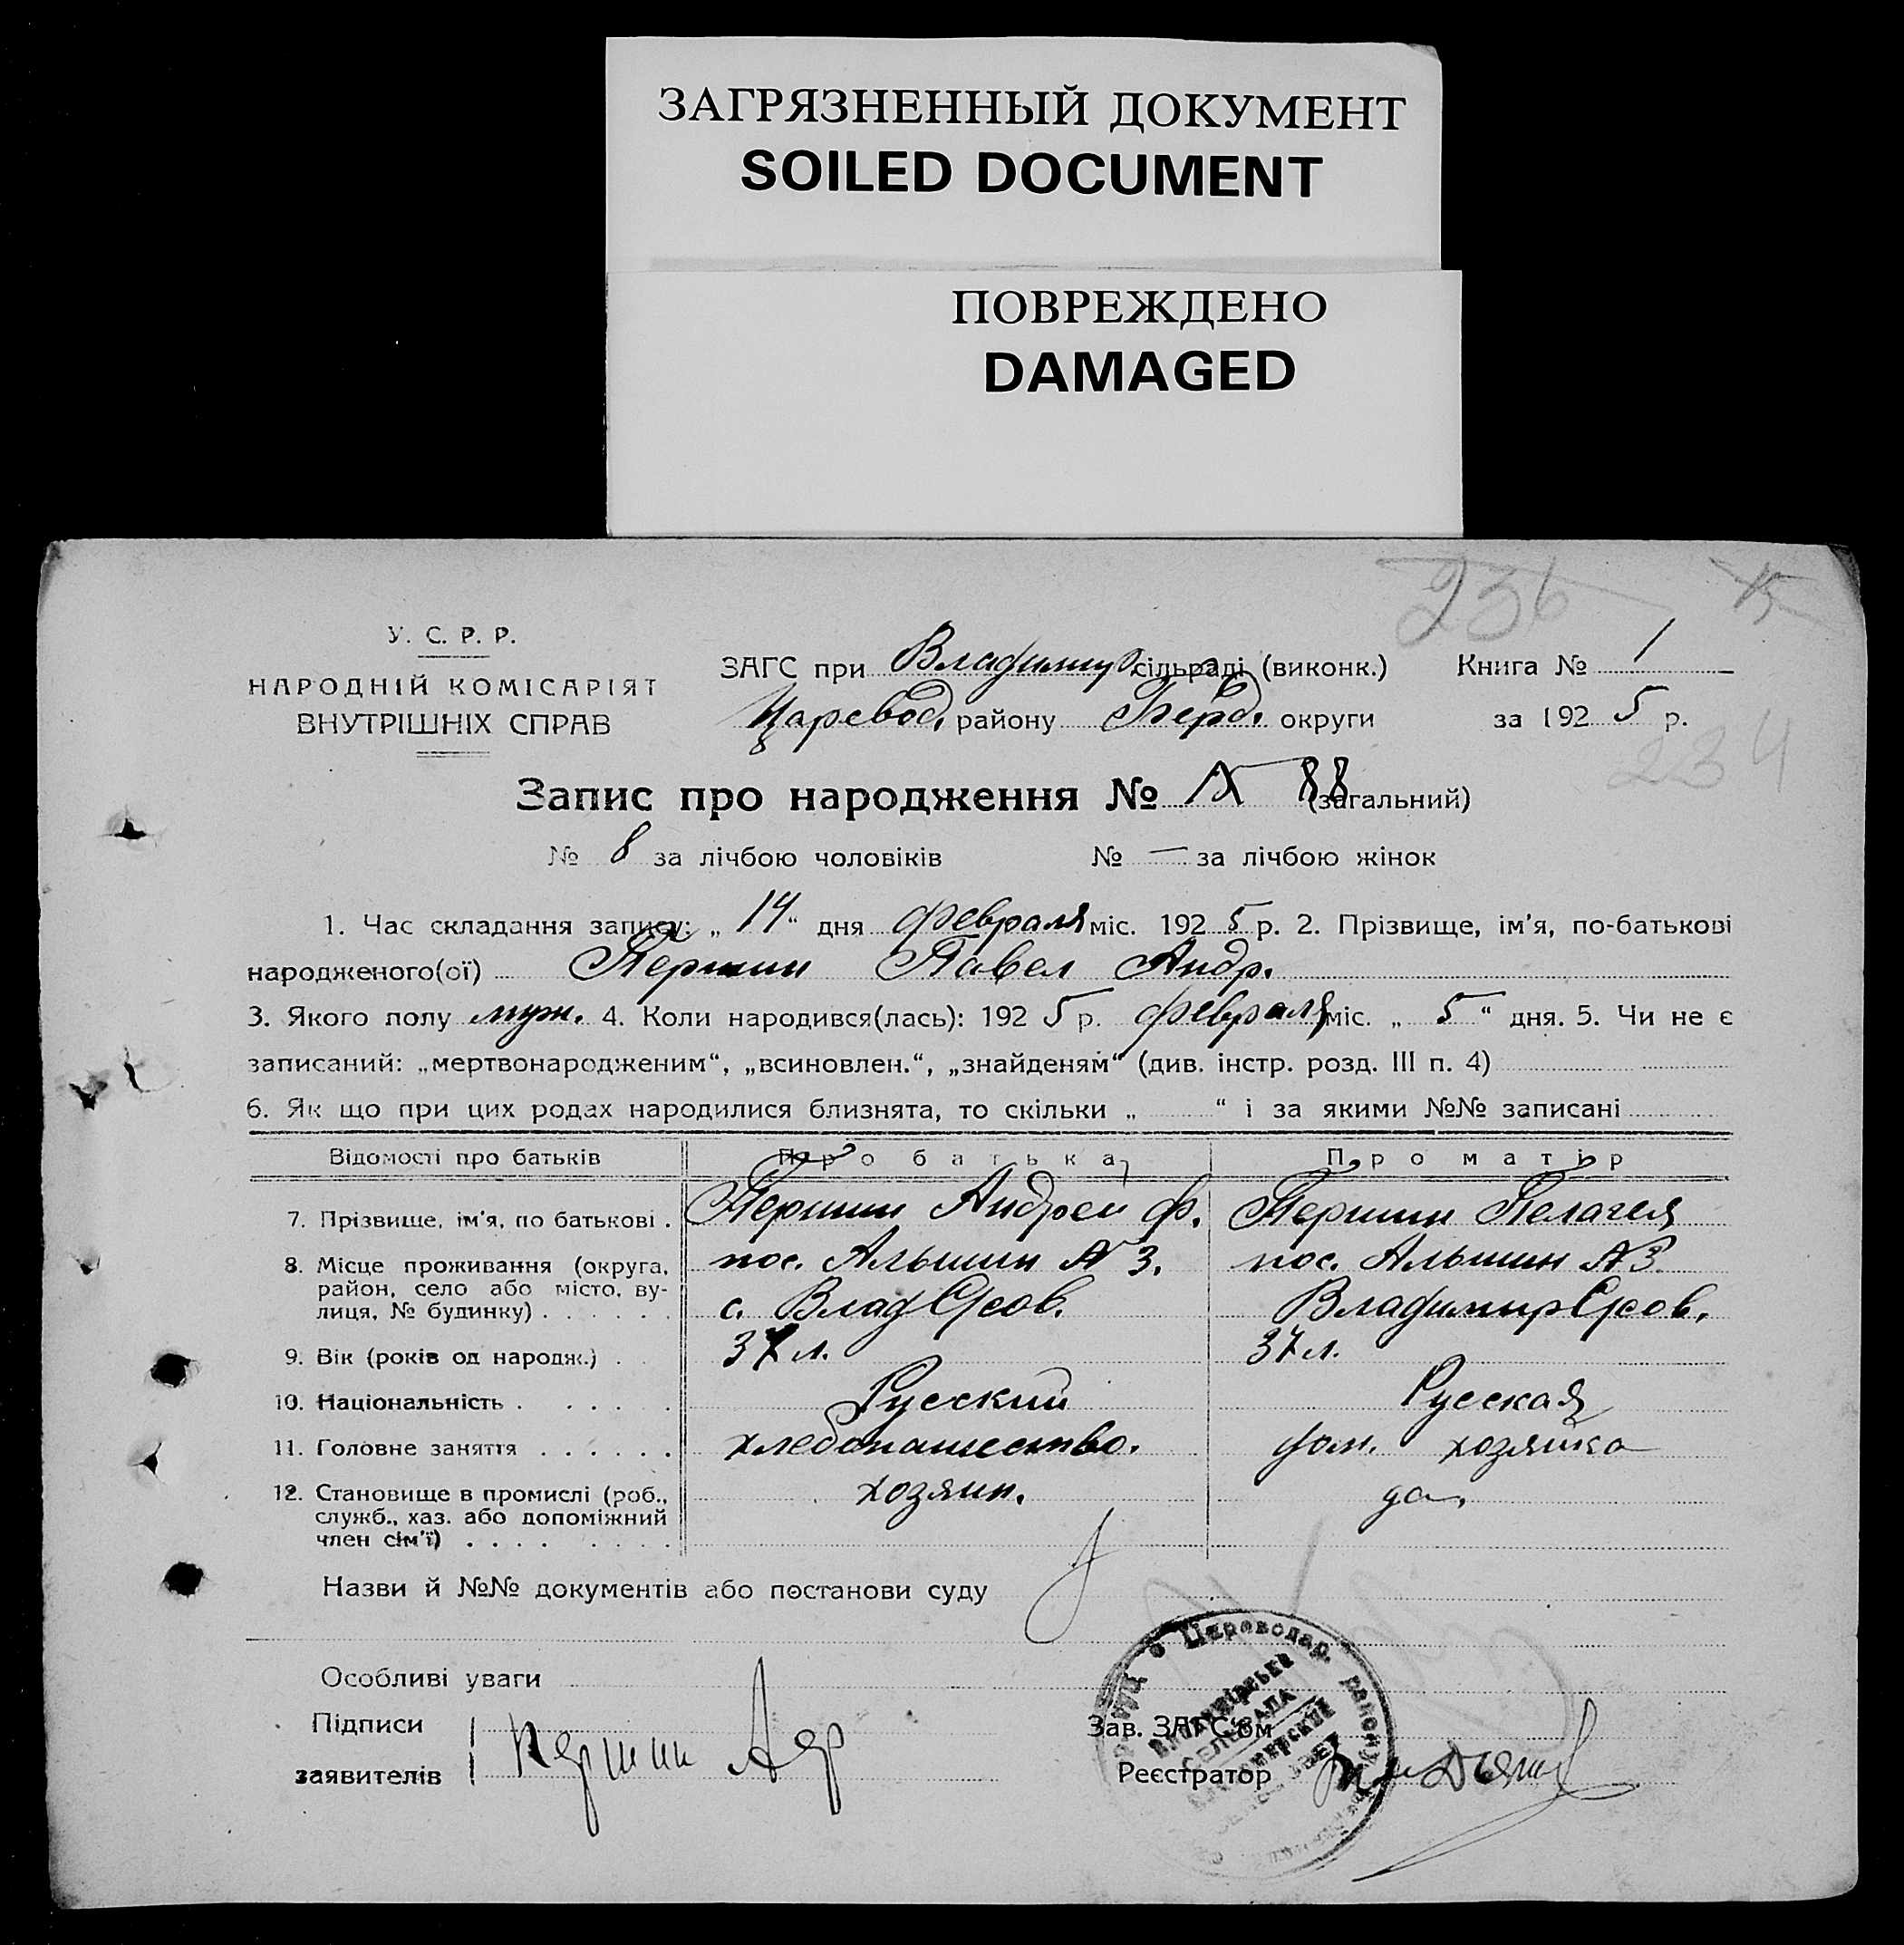 ЗАГРЯЗНЕННЫЙ ДОКУМЕНТ
SOILED DOCUMENT
ПОВРЕЖДЕНО
DAMAGED
236
У. С. Р. Р.
НАРОДНІЙ КОМІСАРІЯТ
ВНУТРІШНІХ СПРАВ
ЗАГС при Владимир сільраді (виконк.) Книга № 1
Царевод. району Берд. округи за 1925 р.
234
Запис про народження № 88 (загальний)
№ 8 за лічбою чоловіків № — за лічбою жінок
1. Час складання запису: „14“ дня февраля міс. 1925 р. 2. Прізвище, ім'я, по-батькові
народженого(ої) Першин Павел Андр.
3. Якого полу муж. 4. Коли народився(лась): 1925 р. февраля міс. „5“ дня. 5. Чи не є
записаний: „мертвонародженим“, „всиновлен.“, „знайденям“ (див. інстр. розд. III п. 4)
6. Як що при цих родах народилися близнята, то скільки „ “ і за якими №№ записані
Відомості про батьків Про батька Про матір
7. Прізвище, ім'я, по батькові . Першин Андрей Ф. Першин Пелагея
8. Місце проживання (округа, пос. Альшин № 3. пос. Альшин № 3.
район, село або місто, ву-
лиця, № будинку) . . . . . . с. Влад Владимир
9. Вік (років од народж.) . 37 л. 37 л.
10. Національність . . . . . Русский Русская
11. Головне заняття . . . . . . хлебопашество. дом. хозяйка
12. Становище в промислі (роб., хозяин. да.
служб., хаз. або допоміжний
член сім'ї) . . . . . . . .
Назви й №№ документів або постанови суду
Особливі уваги
Підписи
заявителів Першин
Зав. ЗАГС'ом
Реєстратор
Цареводар району